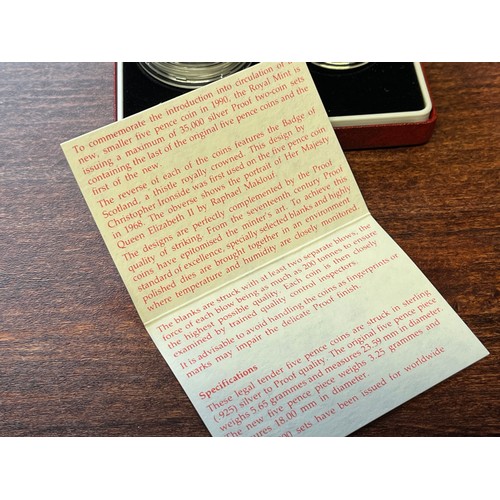 To commemorate the introduction into circulation of a
new, smaller five pence coin in 1990, the Royal Mint is
issuing a maximum of 35,000 silver Proof two-coin sets
containing the last of the original five pence coins and the
first of the new.
The reverse of each of the coins features the Badge of
Scotland, a thistle royally crowned. This design by
Christopher Ironside was first used on the five pence coin
in 1968. The obverse shows the Portrait of Her Majesty
Queen Elizabeth II by Raphael Maklouf.
The designs are perfectly complemented by the Proof
quality of striking. From the seventeenth century Proof
coins have epitomised the minter's art. To achieve this
standard of excellence, specially selected blanks and highly
polished dies are brought together in an environment
where temperature and humidity are closely monitored.
The blanks are struck with at least two separate blows, the
force of each blow being as much as 200 tonnes to ensure
the highest possible quality. Each coin is then closely
examined by trained quality control inspectors.
It is advisable to avoid handling the coins as fingerprints or
marks may impair the delicate Proof finish.
Specifications
These legal tender five pence coins are struck in sterling
(.925) silver to Proof quality. The original five pence piece
weighs 5.65 grammes and measures 23.59 mm in diameter.
The new five pence piece weighs 3.25 grammes and
ures 18.00 mm in diameter.
00 sets have been issued for worldwide